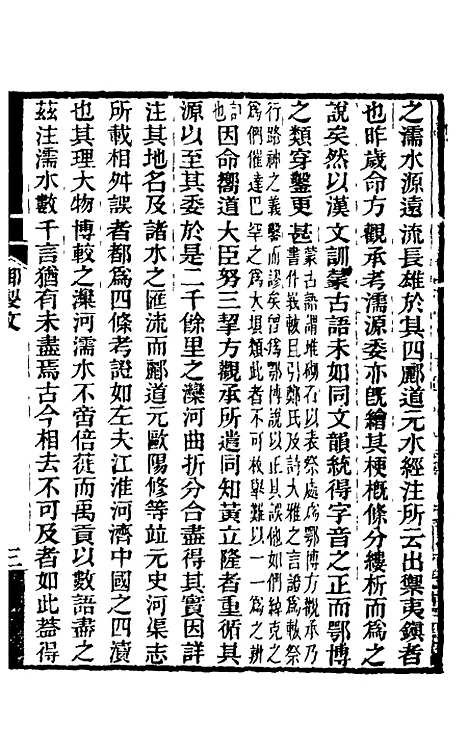 之濡水源遠流長雄於其四酈道元水經注所云出禦夷鎮者
也昨歲命方觀承考濡源委亦既繪其梗概條分縷析而為之
說矣然以漢文訓蒙古語未如同文韻統得字音之正而鄂博
之類穿鑿更甚蒙古語謂堆砌石以表祭處為鄂博方觀承乃
書作莪軷且引鄭氏及詩大雅之言說為軷祭
行路神之義鑿而謬矣曾為鄂博說以正其誤他如們綽克之
為們催達巴罕之為大壩類此者不可枚舉難以一一為之辨
記
也因命嚮道大臣努三挈方觀承所遣同知黃立隆者重循其
源以至其委於是二千餘里之灤河曲折分合盡得其實因詳
注其地名及諸水之匯流而酈道元歐陽修等竝元史河渠志
所載相舛誤者都為四條考證如左夫江淮河濟中國之四瀆
也其理大物博較之灤河濡水不啻倍蓰而禹貢以數語盡之
茲注濡水數千言猶有未盡焉古今相去不可及者如此蓋得
御製文
三